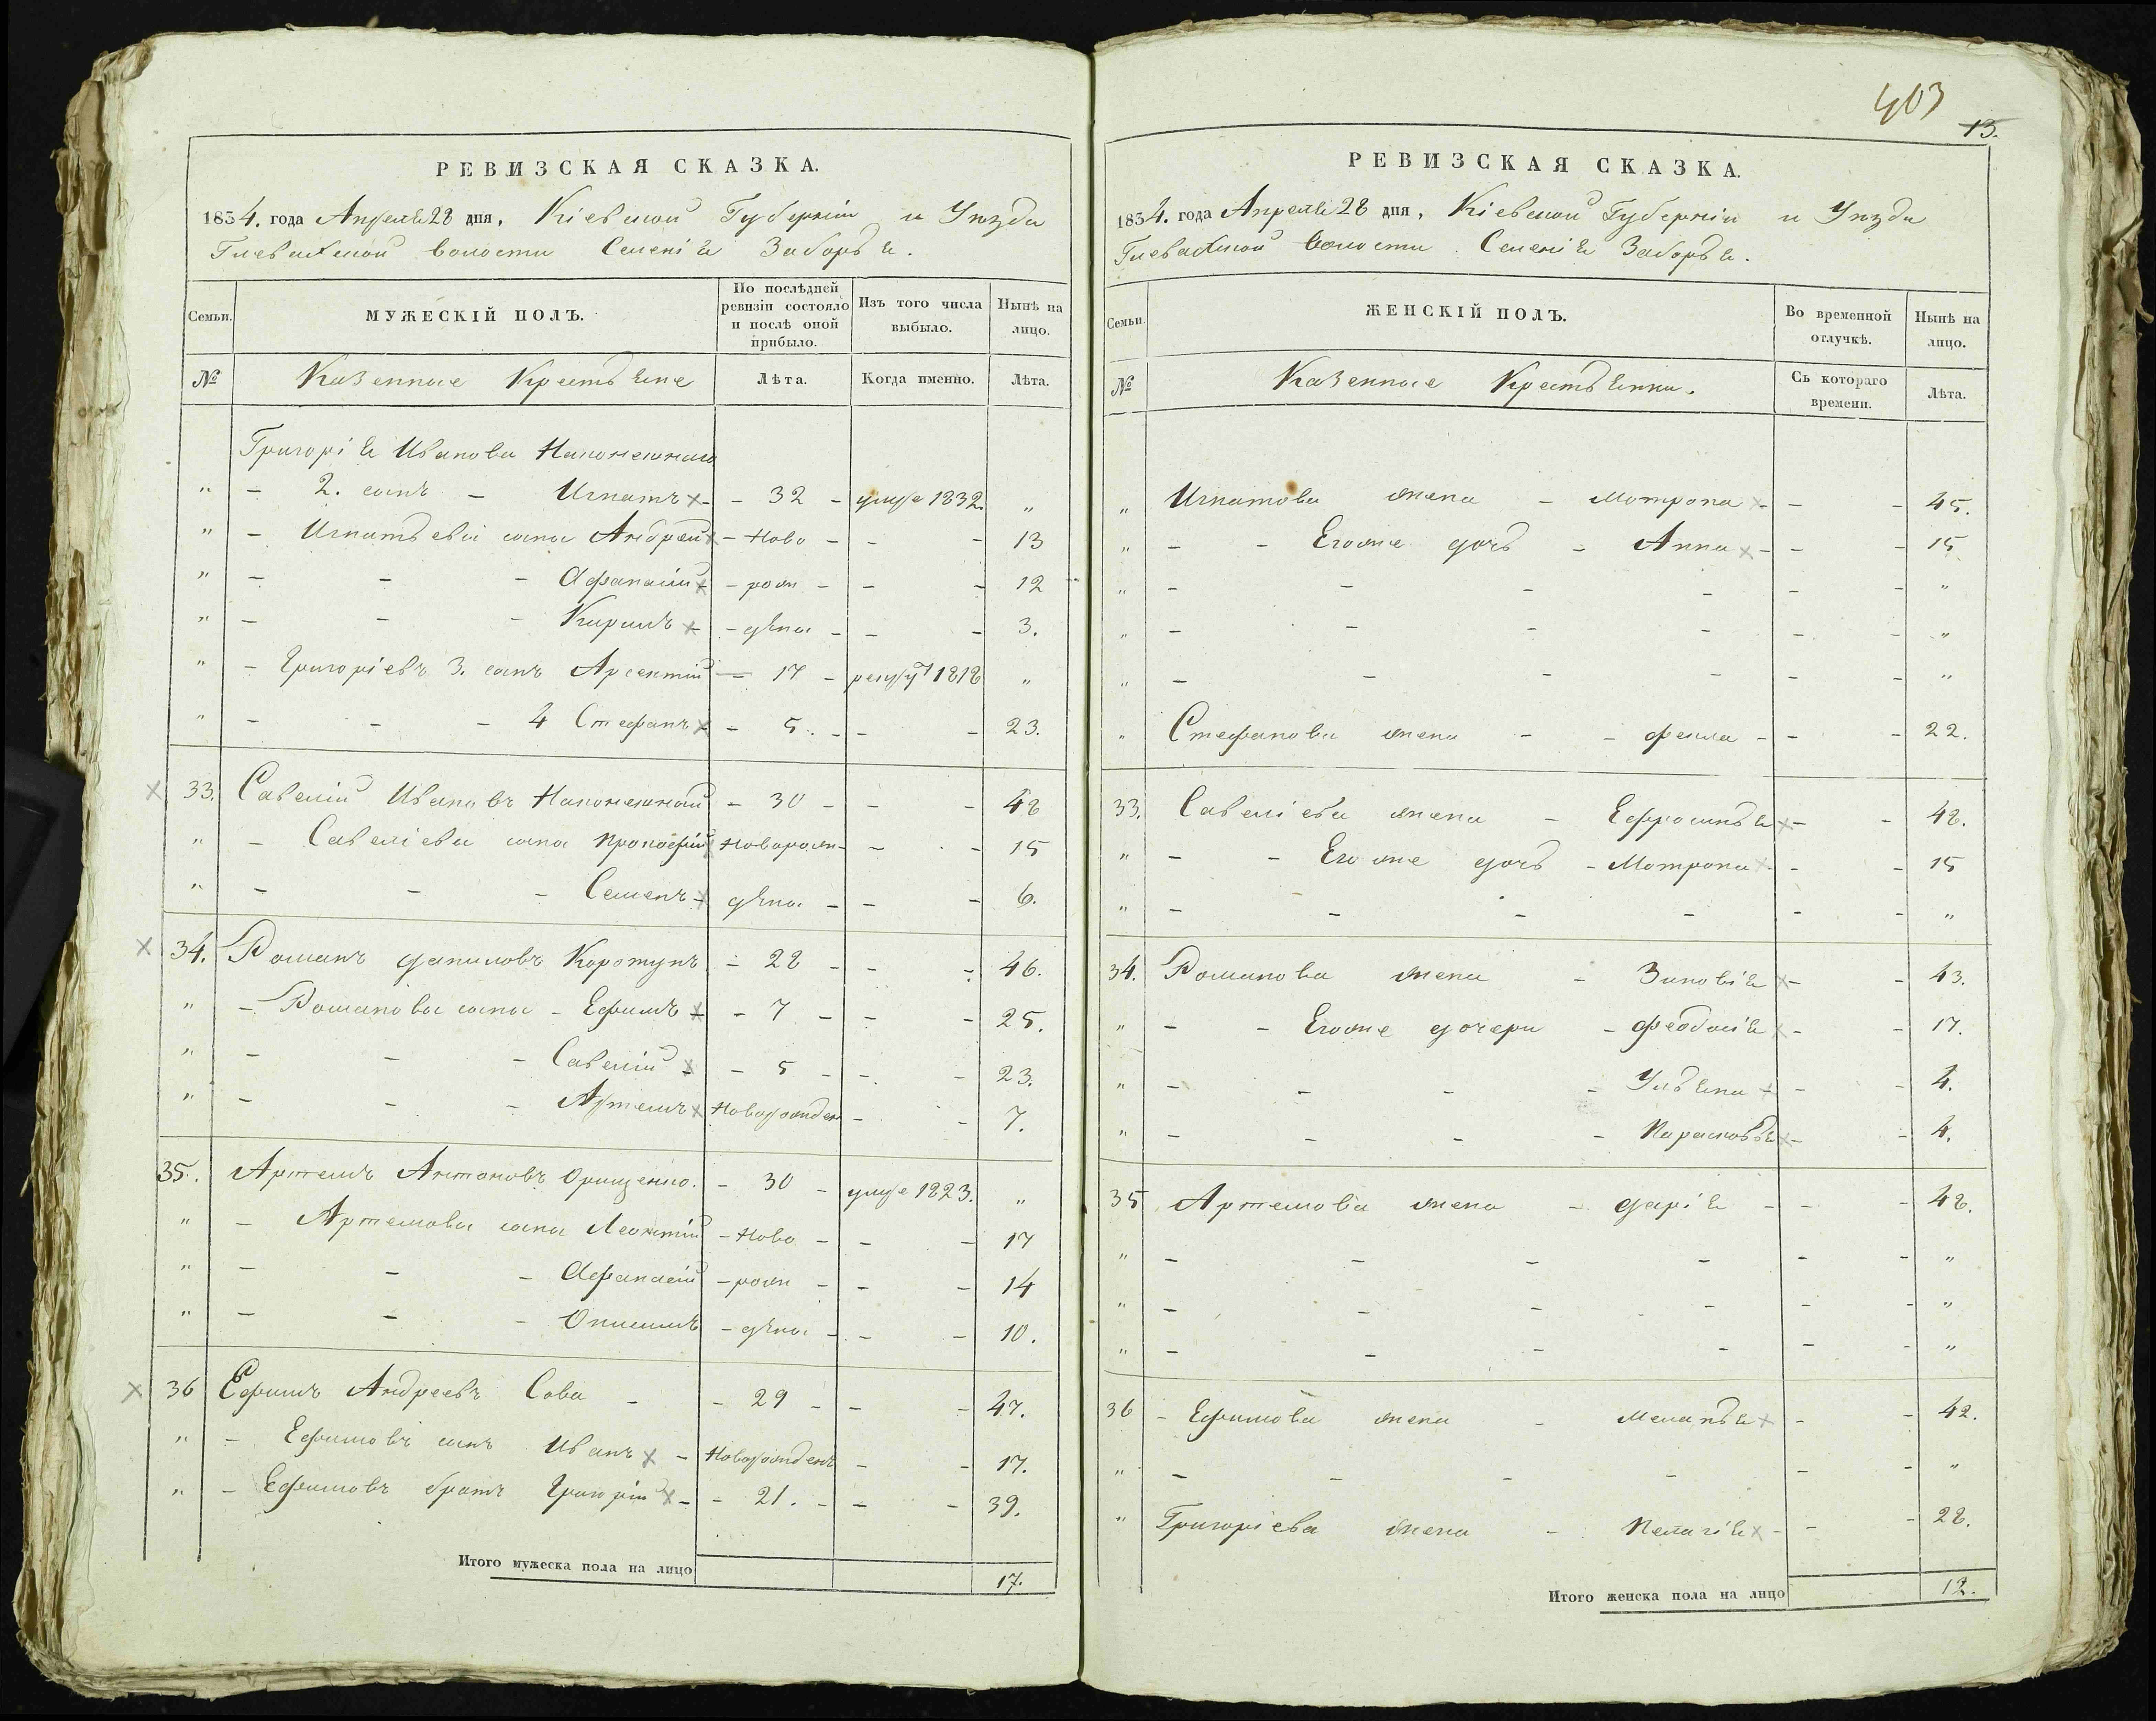 403
13.
РЕВИЗСКАЯ СКАЗКА.
1834. года Апреля 28 дня, Кіевской Губерніи и Уѣзда
Глевахской волости Селенія Заборья.
Семьи.
МУЖЕСКІЙ ПОЛЪ.
По послѣдней ревизіи состояло и послѣ оной прибыло.
Изъ того числа выбыло.
Нынѣ на лицо.
№ Казенные Крестьяне Лѣта. Когда именно. Лѣта.
Григорія Иванова
" - 2. сынъ - Игнатъ - 32 - умре 1832. "
" - Игнатьевы сыны Андрей - Ново - - - 13
" - - - Афанасій - рож - - - 12
" - - - Кирилъ - дены - - - 3.
" - Григоріевъ 3. сынъ Арсентій - 17 - 1818 "
" - - - 4 Стефанъ - 5. - - - 23.
33. Савелій Ивановъ - 30 - - - 48
" - Савеліевы сыны Прокофій Новорож - - - 15
" - - - Семенъ - дены - - - 6.
34. Романъ Даниловъ Коротунъ - 28 - - - 46.
" - Романовы сыны - Ефимъ - 7 - - - 25.
" - - - Савелій - 5 - - - 23.
" - - - Артемъ Новорожден - - 7.
35. Артемъ Антоновъ Орищенко. - 30 - умре 1823. "
" - Артемовы сыны Леонтій - Ново - - - 17
" - - - Афанасій - рож - - - 14
" - - - Онисимъ - дены - - - 10.
36 Ефимъ Андреевъ Сова - - 29 - - - 47.
" - Ефимовъ сынъ Иванъ - Новорожденъ - - 17.
" - Ефимовъ братъ Григорій - - 21. - - - 39.
Итого мужеска пола на лицо 17.
РЕВИЗСКАЯ СКАЗКА.
1834. года Апреля 28 дня, Кіевской Губерніи и Уѣзда
Глевахской волости Селенія Заборья.
Семьи.
ЖЕНСКІЙ ПОЛЪ.
Во временной отлучкѣ.
Нынѣ на лицо.
№ Казенные Крестьянки. Съ котораго времени. Лѣта.
" Игнатова жена - Мотрона - - - 45.
" - - Егоже дочь - Анна - - - 15
" - - - - - - "
" - - - - - - "
" - - - - - - "
" Стефанова жена - - Фекла - - - 22.
33. Савеліева жена - Ефросинья - - 48.
" - - Егоже дочь - Мотрона - - 15
" - - - - - - "
34. Романова жена - Зиновія - - 43.
" - - Егоже дочери - Феодосія - - 17.
" - - - - Ульяна - - 4.
" - - - - Парасковья - - 4.
35. Артемова жена - Дарія - - - 48.
" - - - - - - "
" - - - - - - "
" - - - - - - "
36 - Ефимова жена - Меланья - - 42.
" - - - - - - "
" Григоріева жена - Пелагія - - - 28.
Итого женска пола на лицо 12.